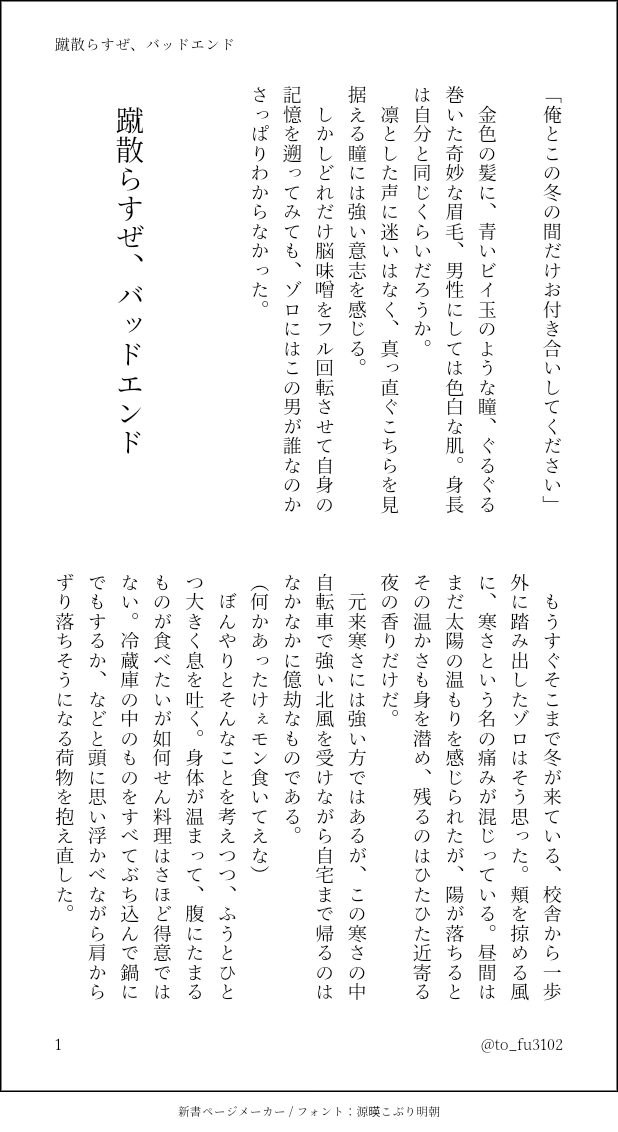 蹴散らすぜ、バッドエンド
「俺とこの冬の間だけお付き合いしてください」
金色の髪に、青いビイ玉のような瞳、ぐるぐる
巻いた奇妙な眉毛、男性にしては色白な肌。身長
は自分と同じくらいだろうか。
凛とした声に迷いはなく、真っ直ぐこちらを見
据える瞳には強い意志を感じる。
しかしどれだけ脳味噌をフル回転させて自身の
記憶を遡ってみても、ゾロにはこの男が誰なのか
さっぱりわからなかった。
蹴散らすぜ、バッドエンド
もうすぐそこまで冬が来ている、校舎から一歩
外に踏み出したゾロはそう思った。頬を掠める風
に、寒さという名の痛みが混じっている。昼間は
まだ太陽の温もりを感じられたが、陽が落ちると
その温かさも身を潜め、残るのはひたひた近寄る
夜の香りだけだ。
元来寒さには強い方ではあるが、この寒さの中
自転車で強い北風を受けながら自宅まで帰るのは
なかなかに億劫なものである。
(何かあったけぇモン食いてえな)
ぼんやりとそんなことを考えつつ、ふうとひと
つ大きく息を吐く。身体が温まって、腹にたまる
ものが食べたいが如何せん料理はさほど得意では
ない。冷蔵庫の中のものをすべてぶち込んで鍋に
でもするか、などと頭に思い浮かべながら肩から
ずり落ちそうになる荷物を抱え直した。
1
@to_fu3102
新書ページメーカー / フォント：源暎こぶり明朝